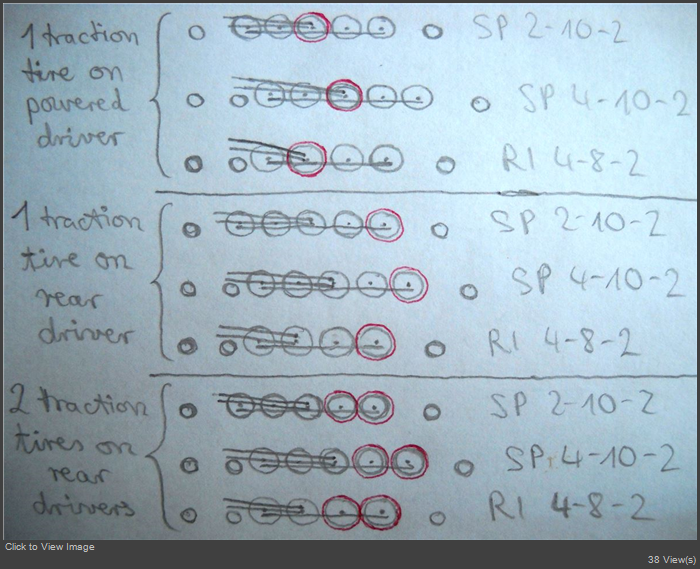 1 traction
tire on
powered
driver
SP 2-10-2
SP 4-10-2
RI 4-8-2
1 traction
tire on
rear
driver
SP 2-10-2
SP 4-10-2
RI 4-8-2
2 traction
tires on
rear
drivers
SP 2-10-2
SP 4-10-2
RI 4-8-2
Click to View Image
38 View(s)